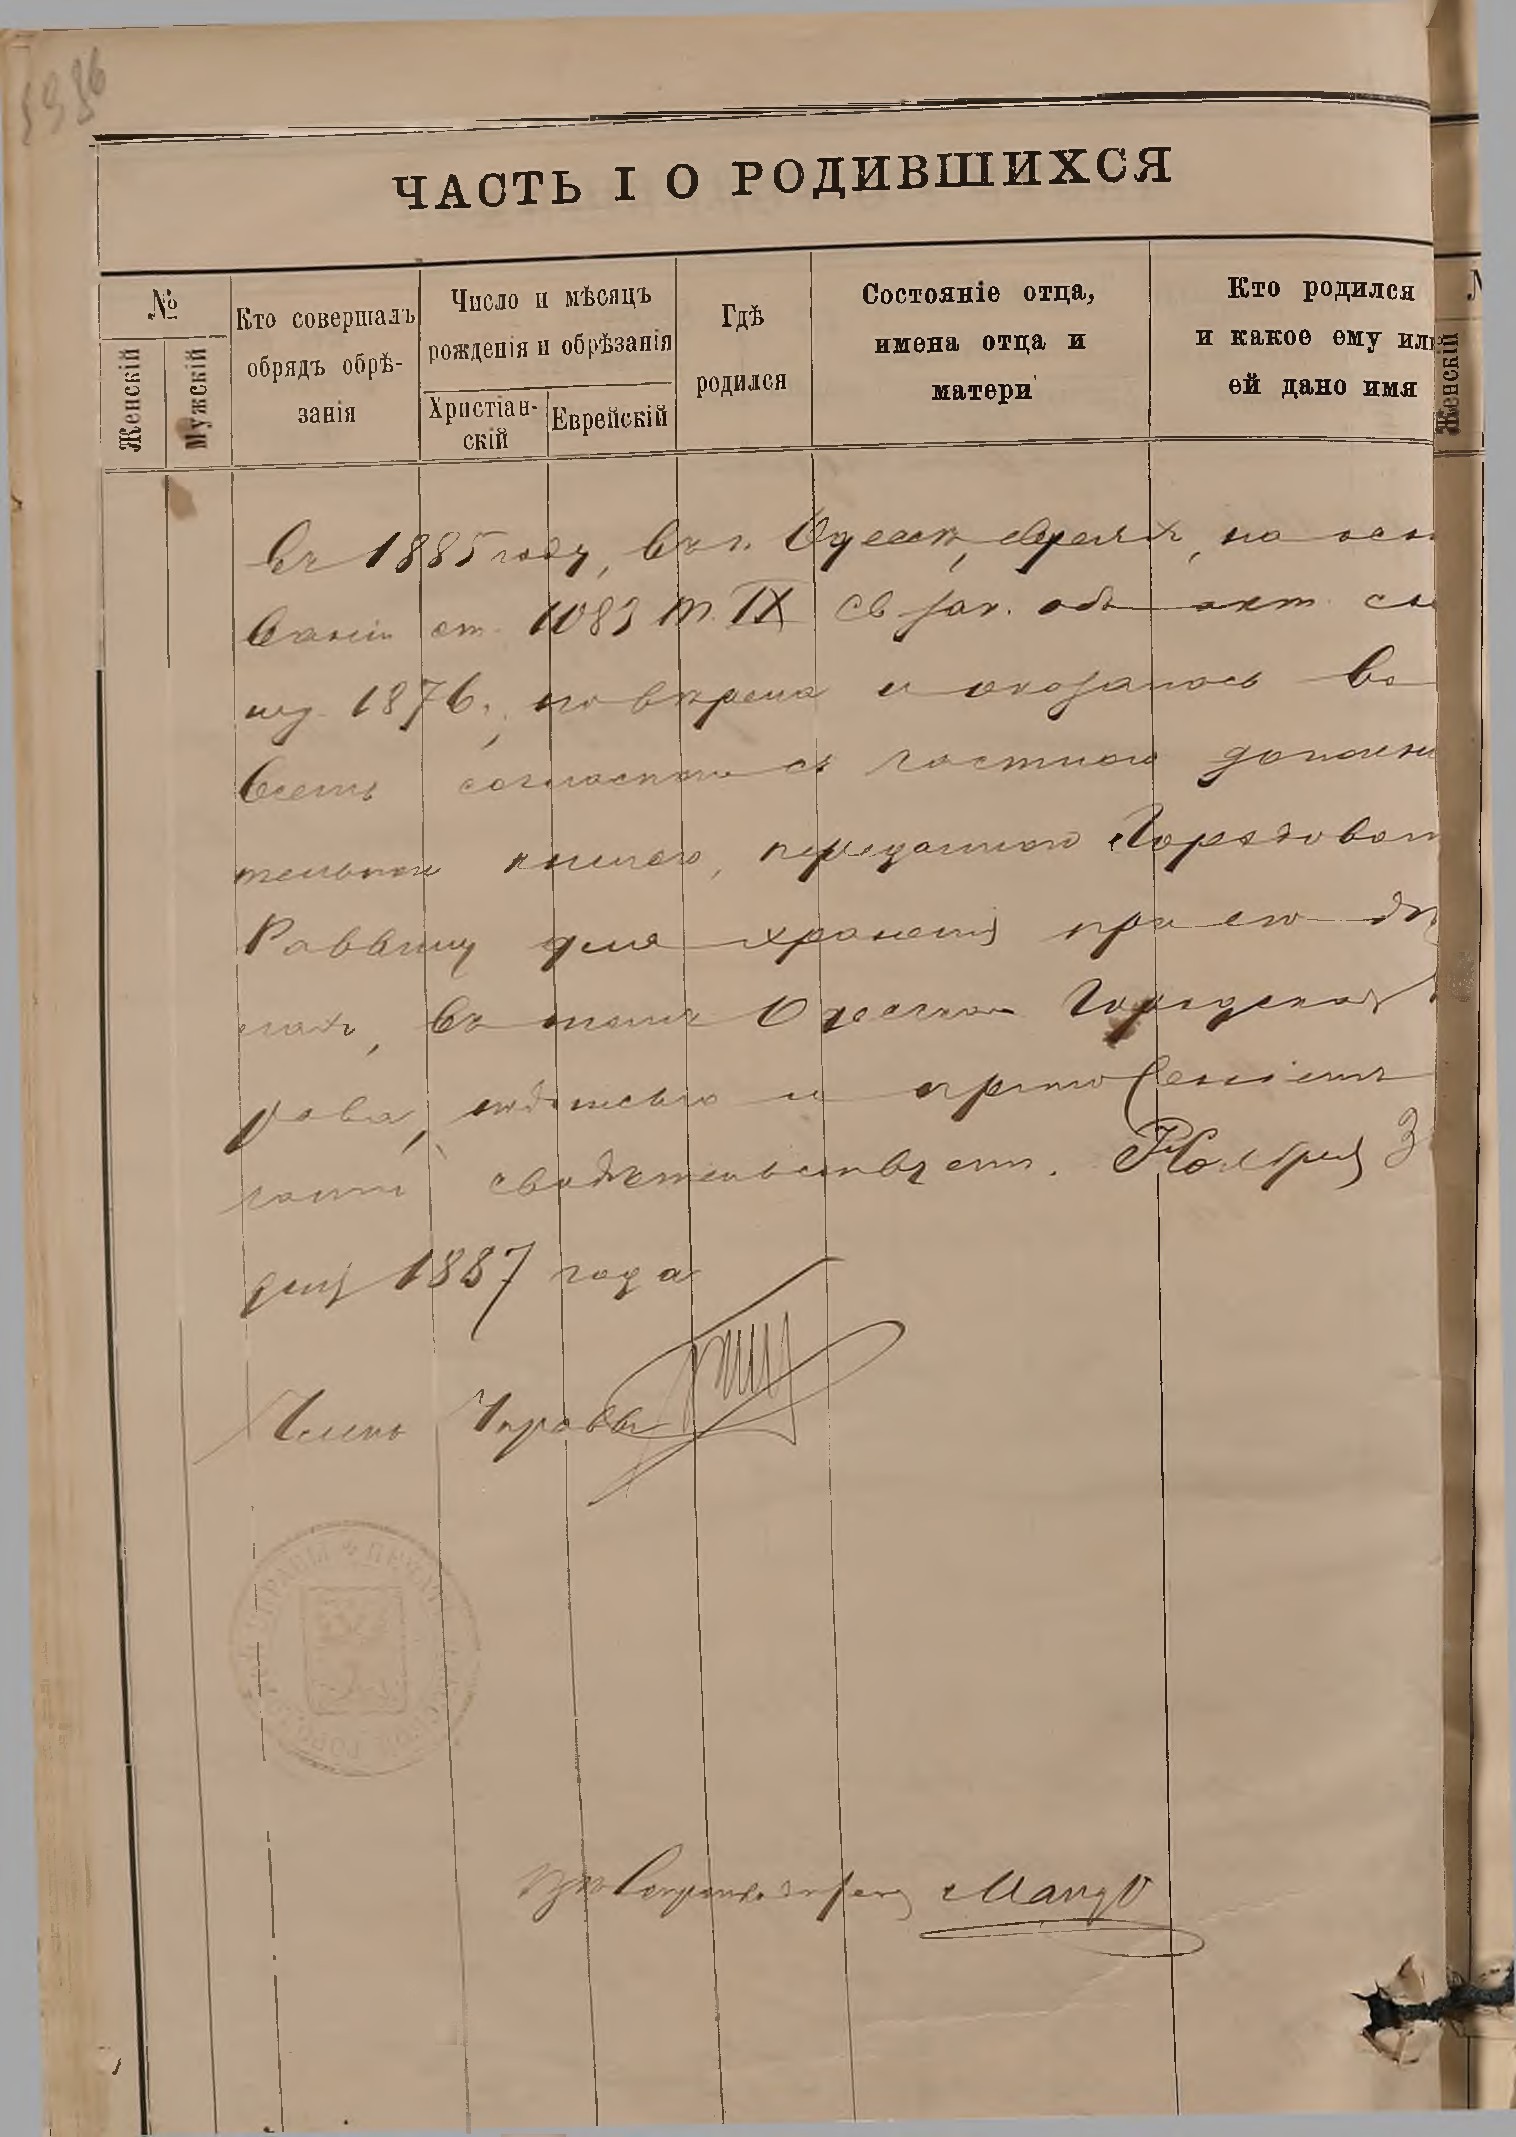 ЧАСТЬ I О РОДИВШИХСЯ
№
Женскій
Мужскій
Кто совершалъ
обрядъ обрѣ-
занія
Число и мѣсяцъ
рожденія и обрѣзанія
Христіан-
скій
Еврейскій
Гдѣ
родился
Состояніе отца,
имена отца и
матери
Кто родился
и какое ему или
ей дано имя
Женскій
въ 1885 году, въ г. Одессѣ, евреяхъ, на осно
ваніи ст. 1083 т. IX св зак. объ акт. сос
изд. 1876 г., повѣрена и оказалась во
всемъ согласною съ частною дополни
тельною книгою, переданною Городовому
Раввину для храненія при его дѣ
лахъ, въ томъ Одесская Городская У
права, подписью и приложеніемъ
печати свидѣтельствуетъ. Ноября 3
дня 1887 года
Членъ Управы